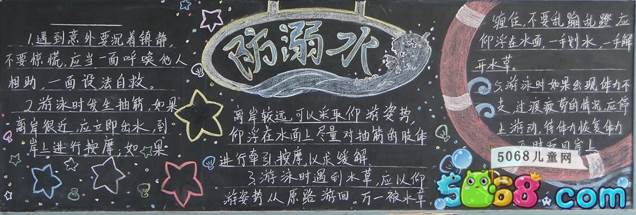 1.遇到意外要沉着镇静,
不要惊慌,应当一面呼唤他人
相助,一面设法自救。
2.游泳时发生抽筋,如果
离岸很近,应立即出水,到
岸上进行按摩;如果
防溺水
离岸较远,可以采取仰游姿势,
仰浮在水面上尽量对抽筋的肢体
进行牵引按摩,以求缓解。
3.游泳时遇到水草,应以仰
游姿势从原路游回,万一被水草
缠住,不要乱蹦乱蹬,应
仰浮在水面,一手划水,一手解
开水草
5.游泳时如果出现体力不
支,过度疲劳的情况,应停
上游动,
5068儿童网
5068.com